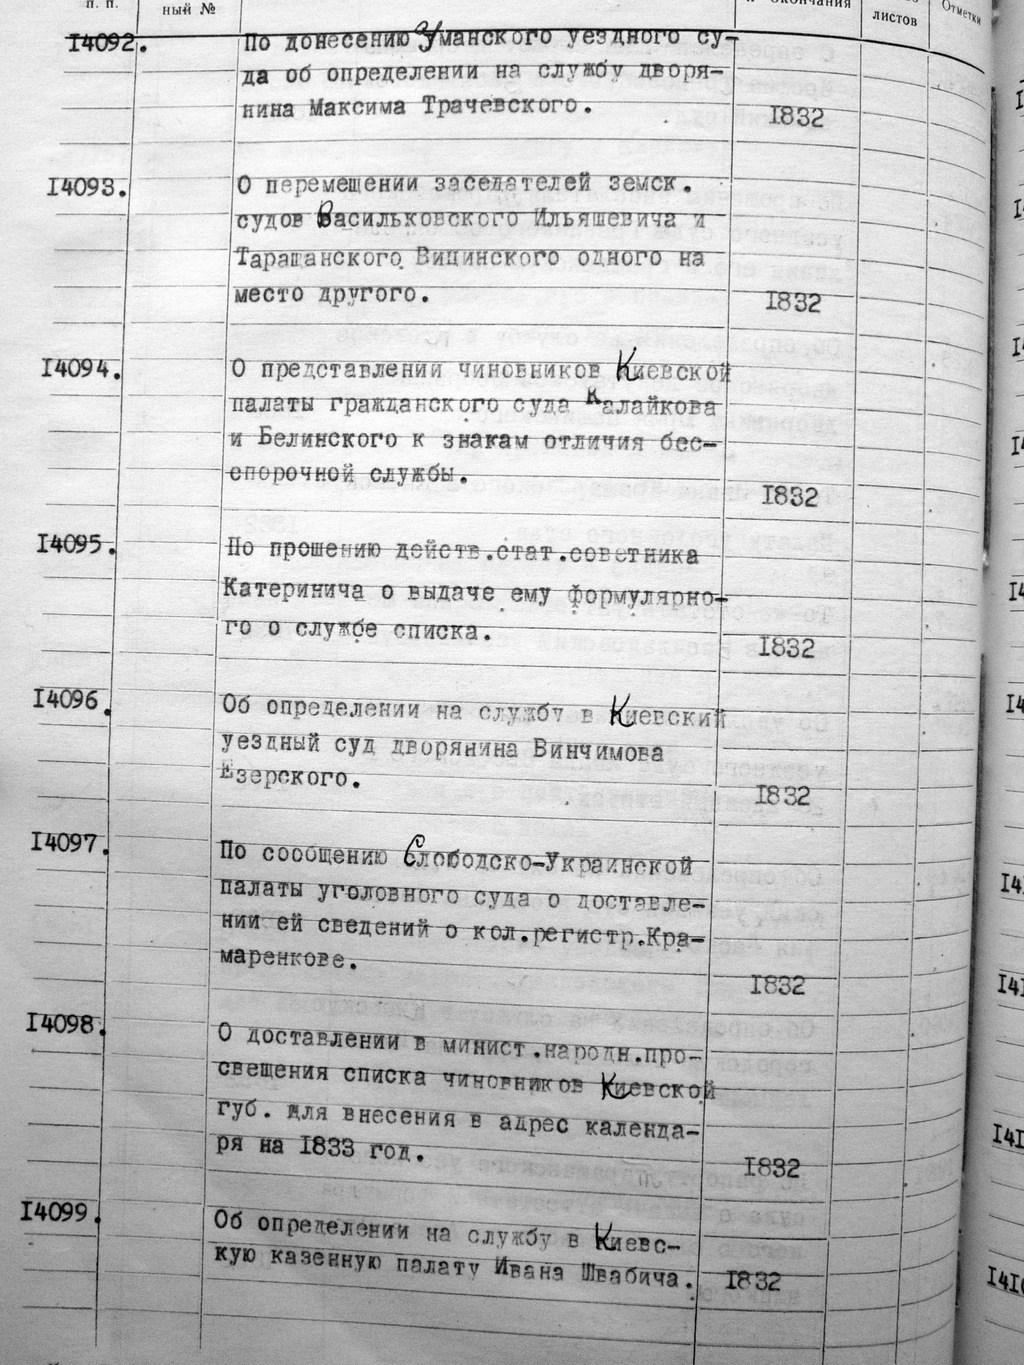 п. п.
ный №
окончания
листов
Отметки
I4092.
По донесению Уманского уездного су-
да об определении на службу дворя-
нина Максима Трачевского.
I832
I4093.
О перемещении заседателей земск.
судов Васильковского Ильяшевича и
Таращанского Вицинского одного на
место другого.
I832
I4094.
О представлении чиновников Киевской
палаты гражданского суда Калайкова
и Белинского к знакам отличия бес-
спорочной службы.
I832
I4095.
По прошению действ.стат.советника
Катеринича о выдаче ему формулярно-
го о службе списка.
I832
I4096.
Об определении на службу в Киевский
уездный суд дворянина Винчимова
Езерского.
I832
I4097.
По сообщению Слободско-Украинской
палаты уголовного суда о доставле-
нии ей сведений о кол.регистр.Кра-
маренкове.
I832
I4098.
О доставлении в минист.народн.про-
свещения списка чиновников Киевской
губ. для внесения в адрес календа-
ря на I833 год.
I832
I4099.
Об определении на службу в Киевс-
кую казенную палату Ивана Швабича.
I832